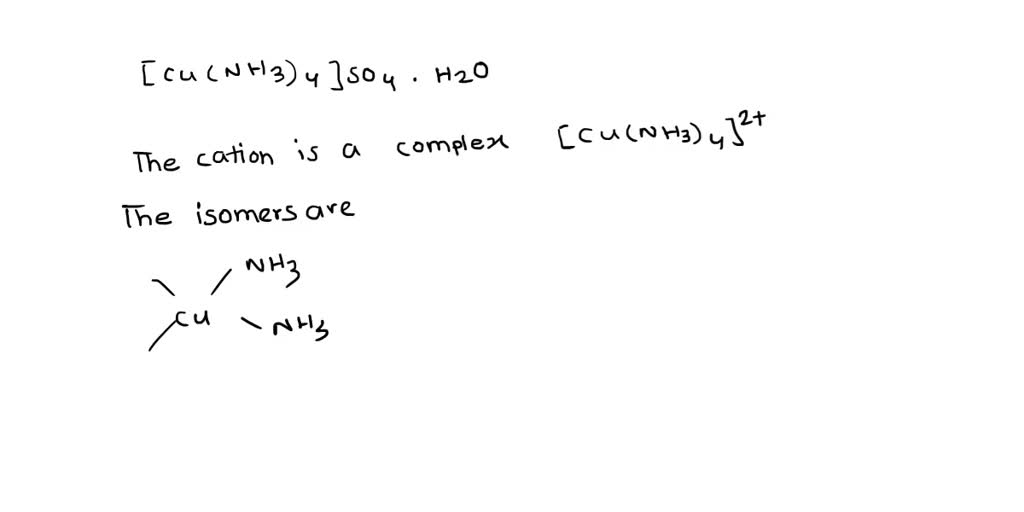 [Cu(NH3)4]SO4 . H2O
The cation is a complex [Cu(NH3)4]2+
The isomers are
NH3
Cu
NH3